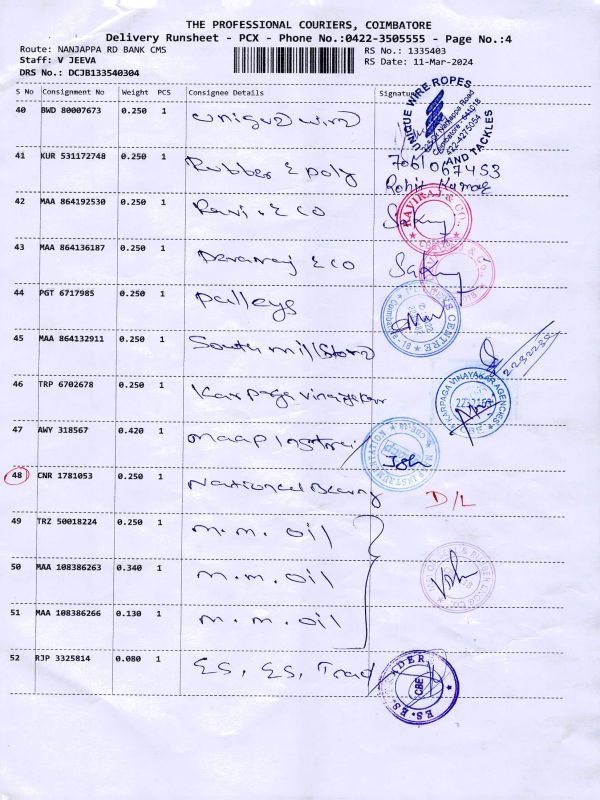 THE PROFESSIONAL COURIERS, COIMBATORE
Delivery Runsheet - PCX - Phone No.:0422-3505555 - Page No.:4
Route: NANJAPPA RD BANK CMS RS No.: 1335403
Staff: V JEEVA RS Date: 11-Mar-2024
DRS No.: DCJB133540304
S No Consignment No Weight PCS Consignee Details Signature
UNIQUE WIRE ROPES
AND TACKLES
Nanjappa Road
Coimbatore - 641018
40 BWD 80007673 0.250 1 unique wire
41 KUR 531172748 0.250 1 Rubber & poly 7061067453
Rohit Kumar
42 MAA 864192530 0.250 1 Ravi & co
RAVIRAJ & CO.
43 MAA 864136187 0.250 1 Devaraj & co
44 PGT 6717985 0.250 1 Pulleys
CENTRE
45 MAA 864132911 0.250 1 South mill store
2232280
46 TRP 6702678 0.250 1 Karpaga vinayakar
KARPAGA VINAYAKAR AGENCIES
47 AWY 318567 0.420 1 maap
MAAP INSTRUMENTATION
48 CNR 1781053 0.250 1 National Bearing D/L
49 TRZ 50018224 0.250 1 m.m. oil
50 MAA 108386263 0.340 1 m.m. oil
51 MAA 108386266 0.130 1 m.m. oil
52 RJP 3325814 0.080 1 ES. ES. Trad
E.S. E.S. TRADER
CBE